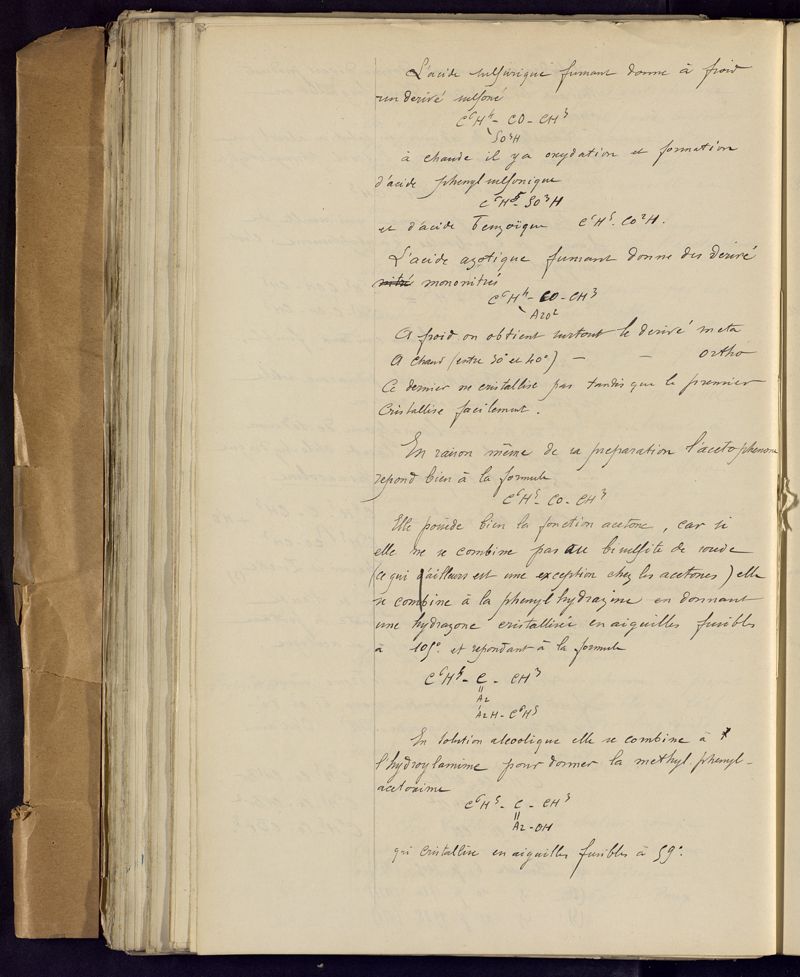 L'acide sulfurique fumant donne à froid
un derivé sulfoné
C⁶H⁴ - CO - CH³
SO³H
à chaude il y a oxydation et formation
d'acide phenylsulfonique
C⁶H⁵ - SO³H
et d'acide benzoïque C⁶H⁵. CO²H.
L'acide azotique fumant donne des derivé
nitré mononitrés
C⁶H⁴ - CO - CH³
AzO²
A froid on obtient surtout le derivé meta
A chaud (entre 30° et 40°) — — ortho
Ce dernier ne cristallise pas tandis que le premier
Cristallise facilement.
En raison même de sa preparation l'acetophenone
repond bien à la formule
C⁶H⁵ - CO - CH³
Elle possède bien la fonction acetone, car si
elle ne se combine pas au bisulfite de soude
(ce qui d'ailleurs est une exception chez les acetones) elle
se combine à la phenylhydrazine en donnant
une hydrazone cristallisée en aiguilles fusibles
à 105° et repondant à la formule
C⁶H⁵ - C - CH³
Az
AzH - C⁶H⁵
En solution alcoolique elle se combine à
l'hydroylamine pour donner la methyl-phenyl-
acetoxime
C⁶H⁵ - C - CH³
Az-OH
qui cristallise en aiguilles fusibles à 59°.